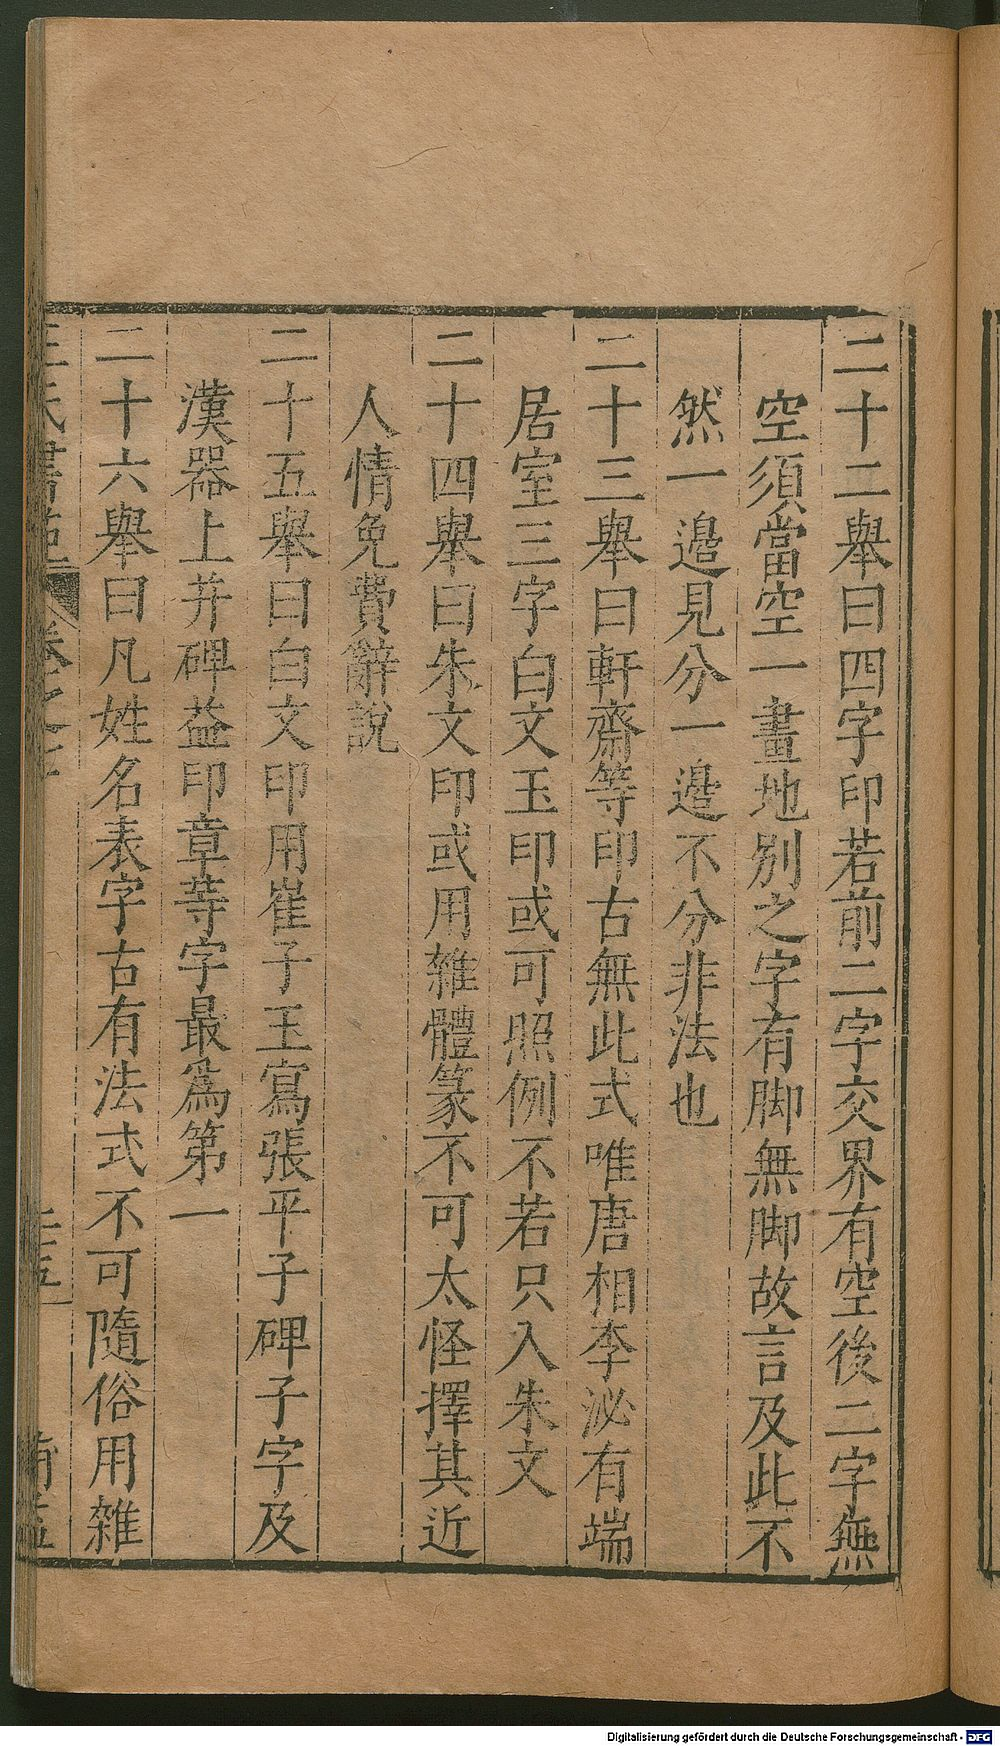 二十二舉曰四字印若前二字交界有空後二字無
空須當空一畫地別之字有脚無脚故言及此不
然一邊見分一邊不分非法也
二十三舉曰軒齋等印古無此式唯唐相李泌有端
居室三字白文玉印或可照例不若只入朱文
二十四舉曰朱文印或用雜體篆不可太怪擇其近
人情免費辭說
二十五舉曰白文印用崔子玉寫張平子碑子字及
漢器上并碑益印章等字最爲第一
二十六舉曰凡姓名表字古有法式不可隨俗用雜
王氏書苑 卷之
Digitalisierung gefördert durch die Deutsche Forschungsgemeinschaft - DFG